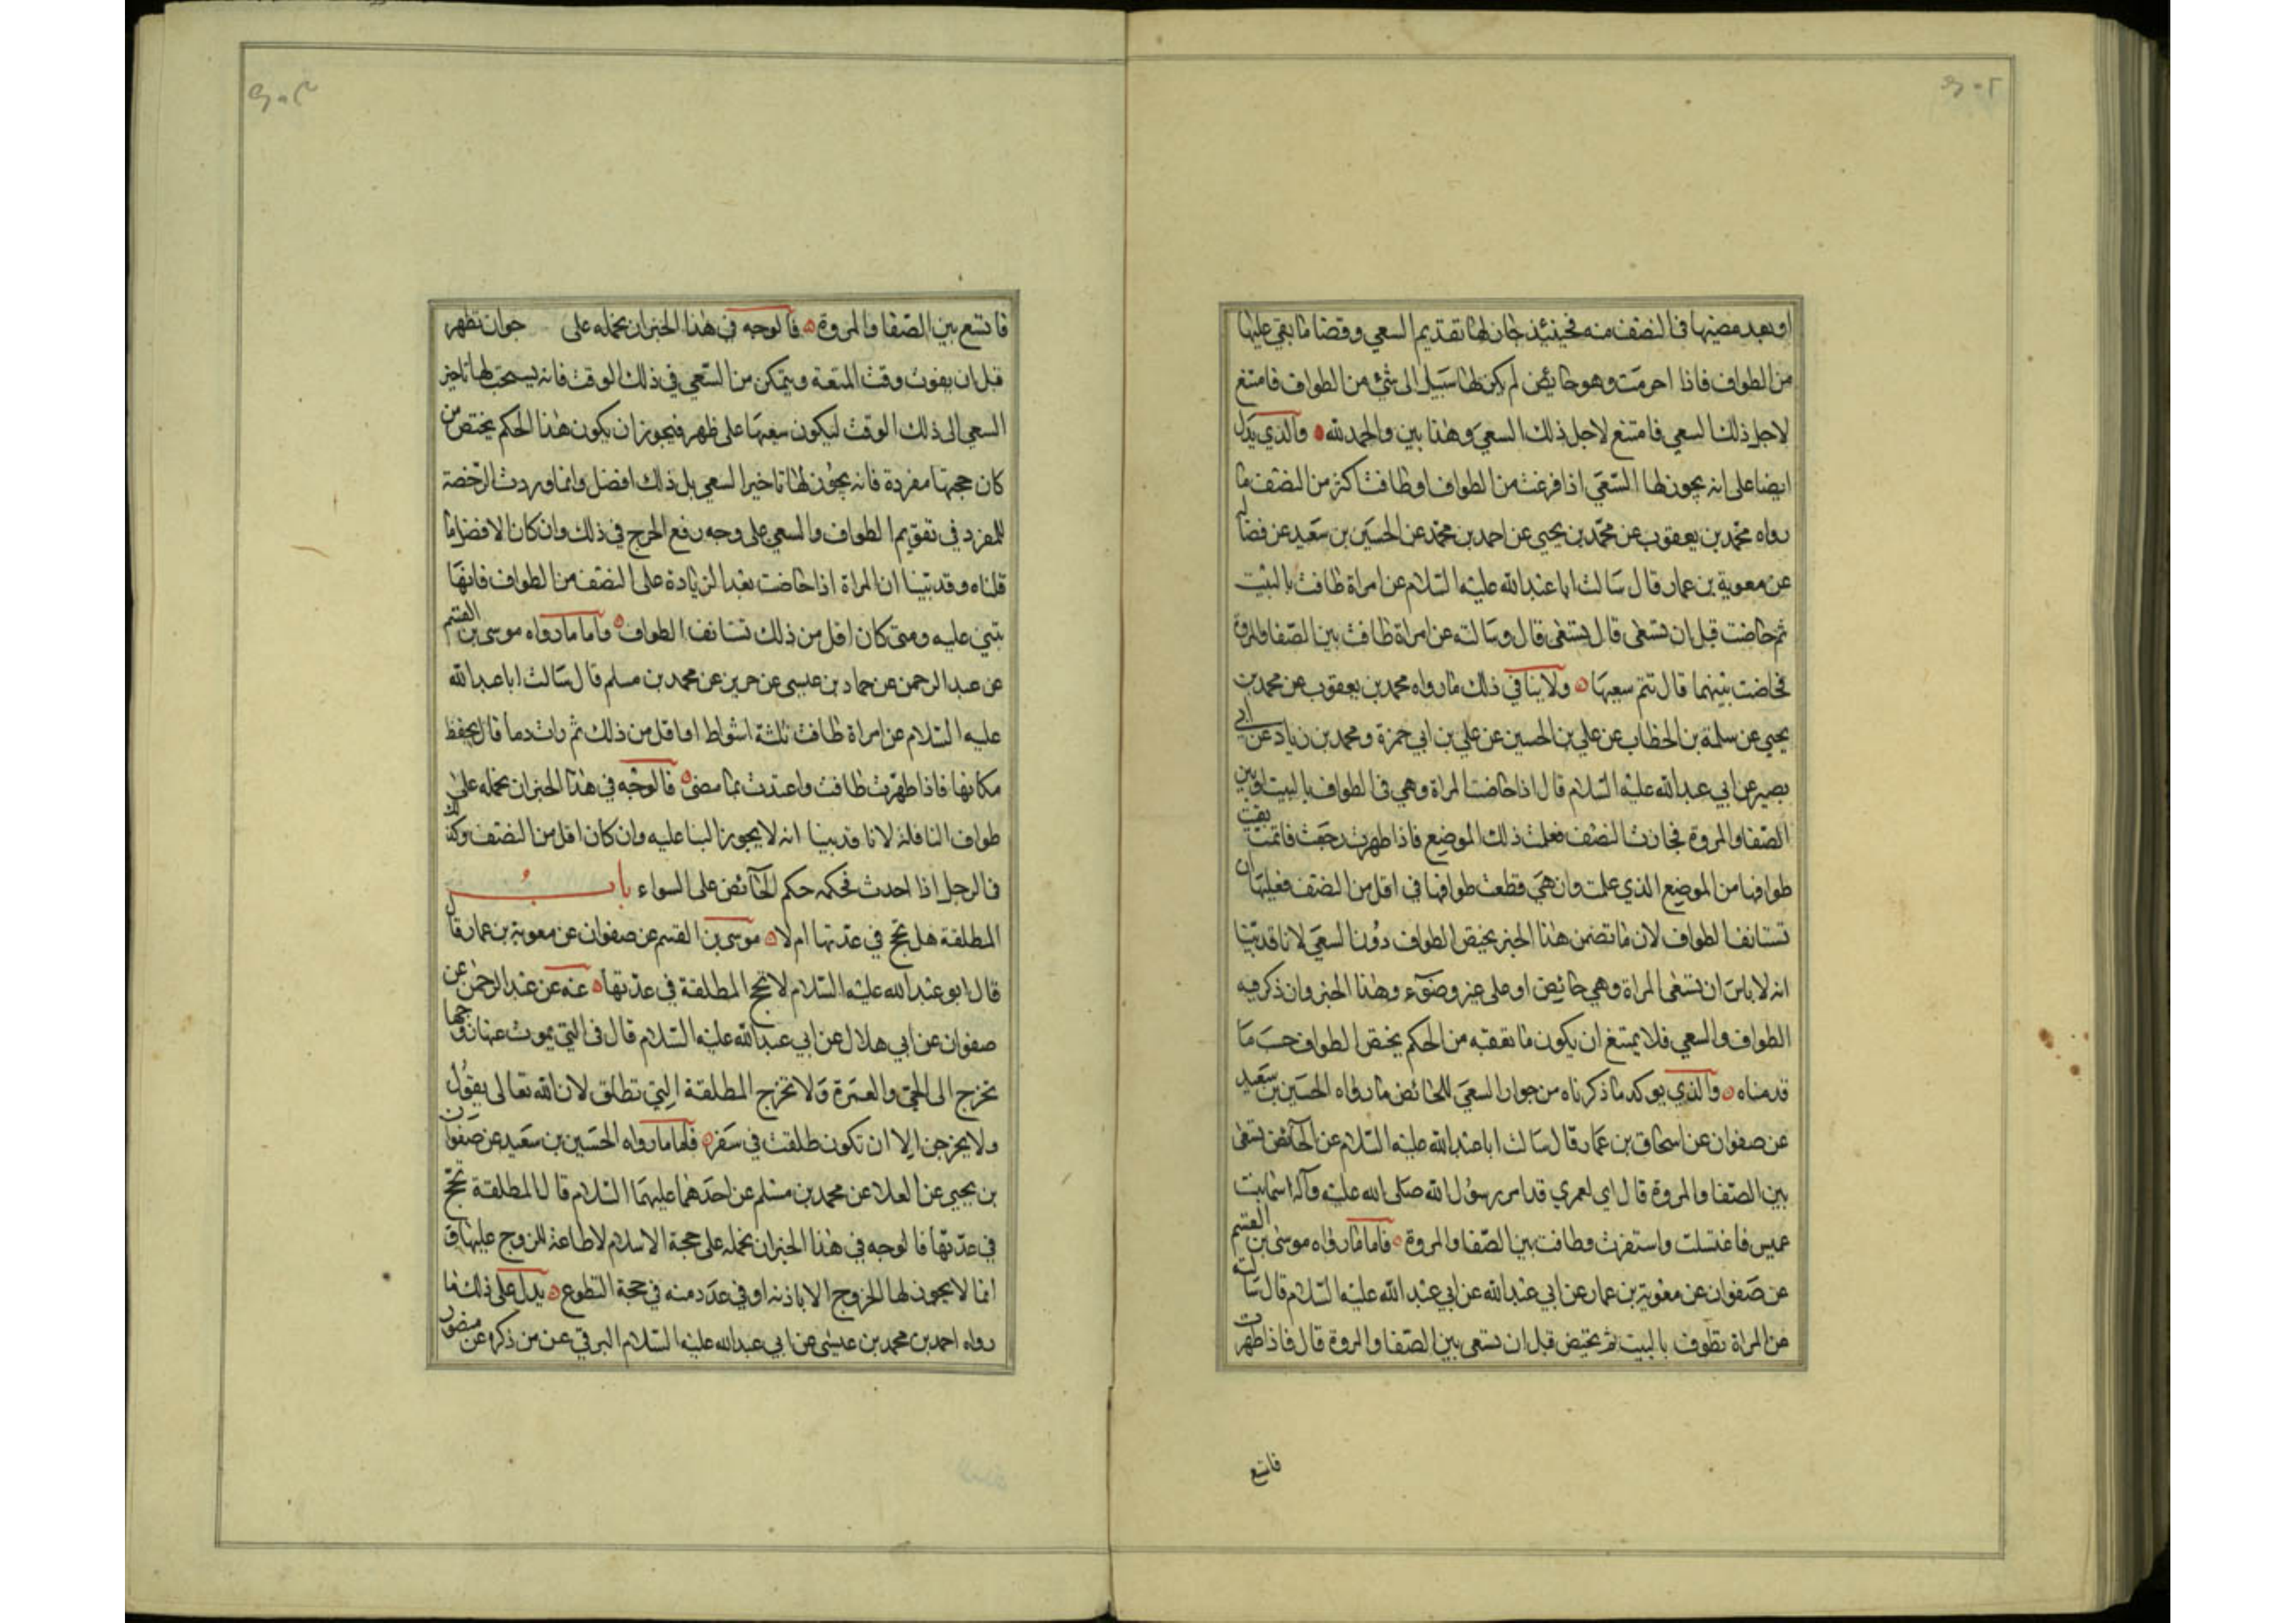 او بعد مضيها في النصف منه فحينئذ جاز لها تقديم السعي وقضا ما بقي عليها
من الطواف فاذا احرمت وهو حائض لم يكن لها سبيل الى شئ من الطواف فامتنع
لاجل ذلك السعي فامتنع لاجل ذلك السعي وهذا بين والحمد لله والذي يدل
ايضا على انه يجوز لها السعي اذا فرغت من الطواف او طافت اكثر من النصف ما
رواه محمد بن يعقوب عن محمد بن يحيى عن احمد بن محمد عن الحسين بن سعيد عن فضاله
عن معوية بن عمار قال سالت ابا عبد الله عليه السلام عن امراة طافت بالبيت
ثم حاضت قبل ان تسعى قال تسعى قال وسالته عن امراة طافت بين الصفا والمروة
فحاضت بينهما قال تتم سعيها ولا ينافي ذلك ما رواه محمد بن يعقوب عن محمد بن
يحيى عن سلمة بن الخطاب عن علي بن الحسين عن علي بن ابي حمزة ومحمد بن زياد عن ابي
بصير عن ابي عبد الله عليه السلام قال اذا حاضت المراة وهي في الطواف بالبيت او بين
الصفا والمروة فجازت النصف فعلمت ذلك الموضع فاذا طهرت رجعت فاتمت بقية
طوافها من الموضع الذي علمت وان هي قطعت طوافها في اقل من النصف فعليها ان
تستانف الطواف لان ما تضمن هذا الخبر يختص الطواف دون السعي لانا قد بينا
انه لا باس ان تسعى المراة وهي حائض او على غير وضوء وهذا الخبر وان ذكر فيه
الطواف والسعي فلا يمتنع ان يكون ما تعقبه من الحكم يختص الطواف حسب ما
قدمناه والذي يوكد ما ذكرناه من جواز السعي للحائض ما رواه الحسين بن سعيد
عن صفوان عن اسحاق بن عمار قال سالت ابا عبد الله عليه السلام عن الحائض تسعى
بين الصفا والمروة قال اي لعمري قد امر رسول الله صلى الله عليه وآله اسما بنت
عميس فاغتسلت واستفرت وطافت بين الصفا والمروة فاما ما رواه موسى بن القسم
عن صفوان عن معوية بن عمار عن ابي عبد الله عن ابي عبد الله عليه السلام قال سالته
عن المراة تطوف بالبيت ثم تحيض قبل ان تسعى بين الصفا والمروة قال فاذا طهرت
فاتسع
فاتسع بين الصفا والمروة فالوجه في هذا الخبر ان نحمله على جواز تطهر
قبل ان يفوت وقت المتعة ويتمكن من السعي في ذلك الوقت فانه يستحب لها تاخير
السعي الى ذلك الوقت ليكون سعيها على طهر فيجوز ان يكون هذا الحكم يختص من
كان حجتها مفردة فانه يجوز لها تاخير السعي بل ذلك افضل وانما وردت الرخصة
للمفرد في تقويم الطواف والسعي على وجه رفع الحرج في ذلك وان كان الافضل ما
قلناه وقد بينا ان المراة اذا حاضت بعد الزيادة على النصف من الطواف فانها
تبني عليه ومتى كان اقل من ذلك تستانف الطواف واما ما رواه موسى بن القسم
عن عبد الرحمن عن حماد بن عيسى عن حريز عن محمد بن مسلم قال سالت ابا عبد الله
عليه السلام عن امراة طافت ثلثة اشواط او اقل من ذلك ثم رات دما قال تحفظ
مكانها فاذا طهرت طافت واعتدت بما مضى فالوجه في هذا الخبر ان نحمله على
طواف النافلة لانا قد بينا انه لا يجوز البنا عليه وان كان اقل من النصف وكذلك
في الرجل اذا احدث فحكمه حكم الحائض على السواء باب
المطلقة هل تحج في عدتها ام لا موسى بن القسم عن صفوان عن معوية بن عمار قال
قال ابو عبد الله عليه السلام لا تحج المطلقة في عدتها عنه عن عبد الرحمن عن
صفوان عن ابي هلال عن ابي عبد الله عليه السلام قال في التي يموت عنها زوجها
تخرج الى الحج والعمرة ولا تخرج المطلقة التي تطلق لان الله تعالى يقول
ولا يخرجن الا ان تكون طلقت في سفر فاما ما رواه الحسين بن سعيد عن صفوان
بن يحيى عن العلا عن محمد بن مسلم عن احدهما عليهما السلام قال المطلقة تحج
في عدتها فالوجه في هذا الخبر ان نحمله على حجة الاسلام لا طاعة للزوج عليها و
انما لا يجوز لها الخروج الا باذنه او في عدد منه في حجة التطوع يدل على ذلك ما
رواه احمد بن محمد بن عيسى عن ابي عبد الله عليه السلام البرقي عن من ذكره عن منصور